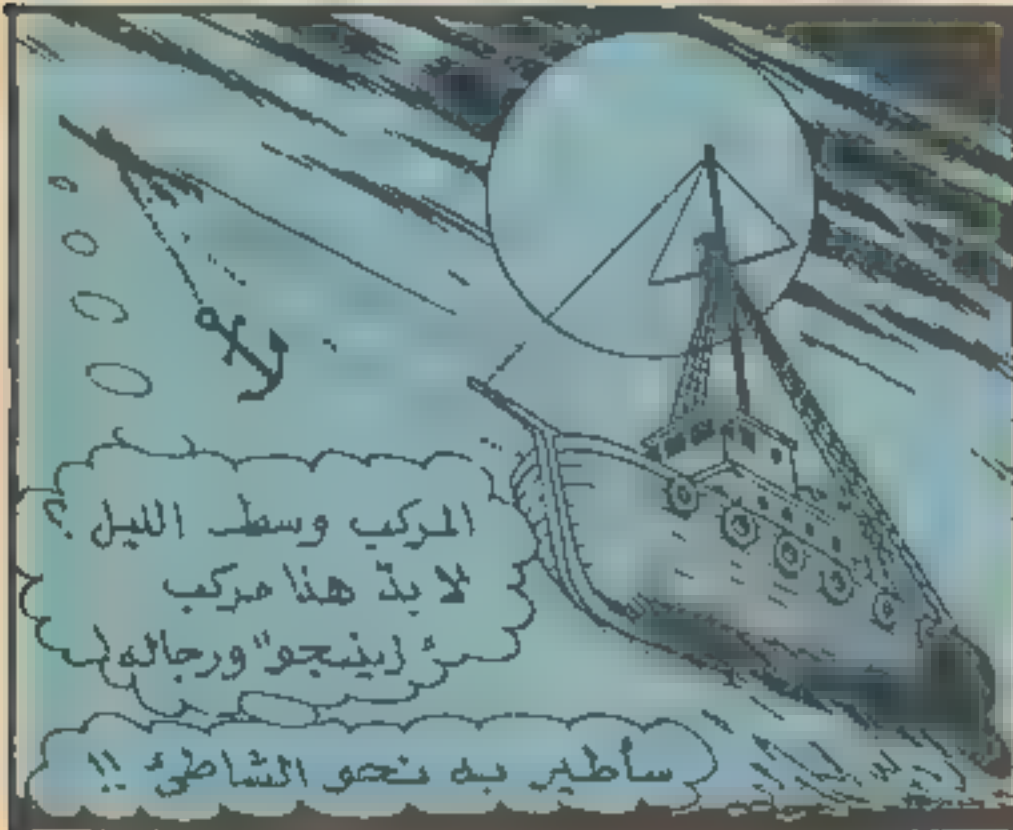 المركب وسط الليل ؟
لا بدّ هذا مركب
"زينيجو" ورجاله
سأطير به نحو الشاطئ !!